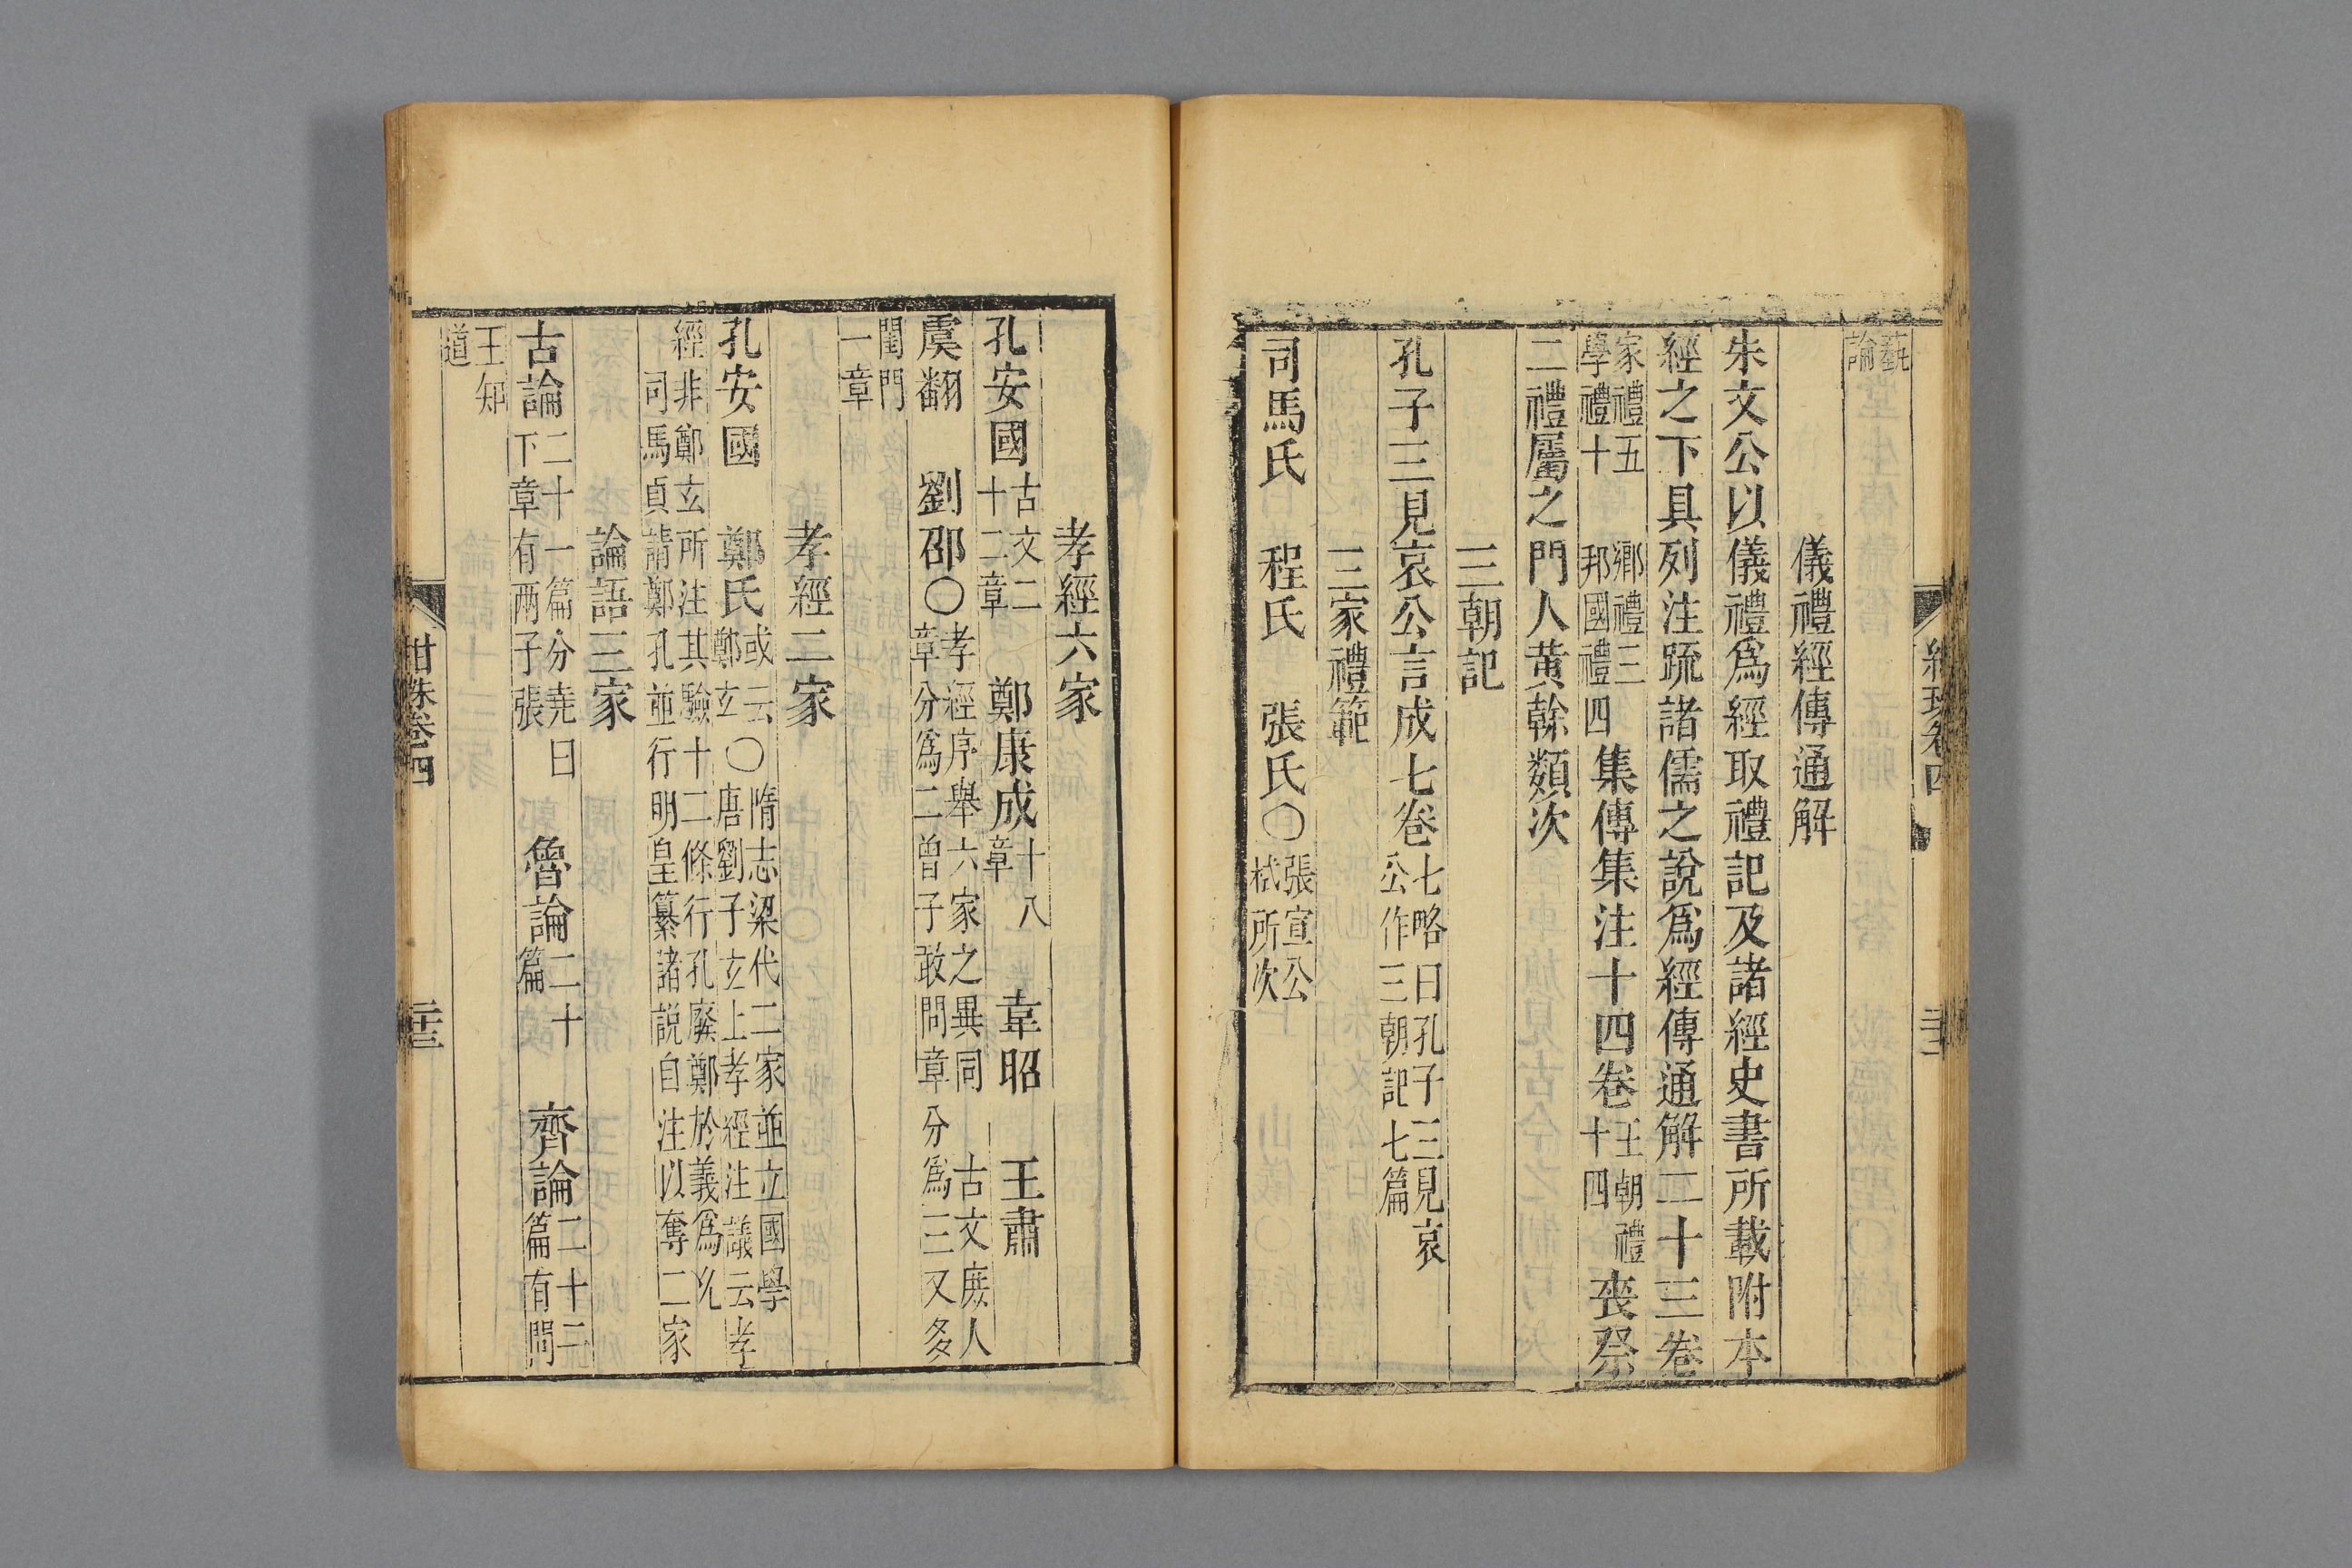 藝
論
儀禮經傳通解
朱文公以儀禮爲經取禮記及諸經史書所載附本
經之下具列注䟽諸儒之說爲經傳通解二十三卷
家禮五 鄉禮三
學禮十 邦國禮四
集傳集注十四卷
王朝禮
十四
喪祭
二禮屬之門人黄榦類次
三朝記
孔子三見哀公言成七卷
七略曰孔子三見哀
公作三朝記七篇
三家禮範
司馬氏 程氏 張氏〇
張宣公
栻所次
孝經六家
孔安國
古文二
十二章
鄭康成
十八
章
韋昭 王肅
虞翻 劉邵〇
孝經序舉六家之異同 古文庶人
章分爲二曾子敢問章分爲三又多
閨門
一章
孝經二家
孔安國 鄭氏
或云
鄭玄
〇
隋志梁代二家並立國學
唐劉子玄上孝經注議云孝
經非鄭玄所注其驗十二條行孔廢鄭於義爲允
司馬貞請鄭孔並行明皇纂諸說自注以奪二家
論語三家
古論
二十一篇分堯曰
下章有兩子張
魯論
二十
篇
齊論
二十二
篇有問
王知
道
甘珠卷四
二十三